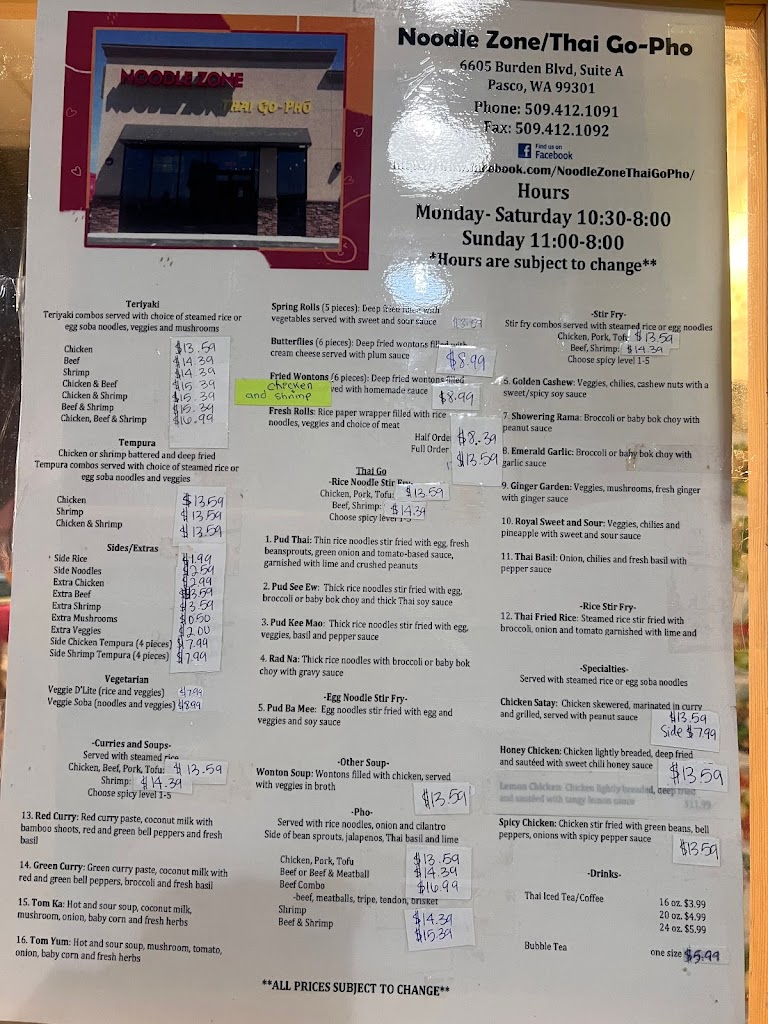 NOODLE ZONE
THAI GO-PHO
Noodle Zone/Thai Go-Pho
6605 Burden Blvd, Suite A
Pasco, WA 99301
Phone: 509.412.1091
Fax: 509.412.1092
Find us on
Facebook
facebook.com/NoodleZoneThaiGoPho/
Hours
Monday- Saturday 10:30-8:00
Sunday 11:00-8:00
*Hours are subject to change**
Teriyaki
Teriyaki combos served with choice of steamed rice or
egg soba noodles, veggies and mushrooms
Chicken $13.59
Beef $14.39
Shrimp $14.39
Chicken & Beef $15.39
Chicken & Shrimp $15.39
Beef & Shrimp $15.39
Chicken, Beef & Shrimp $16.99
Tempura
Chicken or shrimp battered and deep fried
Tempura combos served with choice of steamed rice or
egg soba noodles and veggies
Chicken $13.59
Shrimp $13.59
Chicken & Shrimp $13.59
Sides/Extras
Side Rice $1.99
Side Noodles $2.59
Extra Chicken $2.99
Extra Beef $3.59
Extra Shrimp $3.59
Extra Mushrooms $0.50
Extra Veggies $2.00
Side Chicken Tempura (4 pieces) $7.99
Side Shrimp Tempura (4 pieces) $7.99
Vegetarian
Veggie D'Lite (rice and veggies) $7.99
Veggie Soba (noodles and veggies) $8.99
-Curries and Soups-
Served with steamed rice
Chicken, Beef, Pork, Tofu: $13.59
Shrimp: $14.39
Choose spicy level 1-5
13. Red Curry: Red curry paste, coconut milk with
bamboo shoots, red and green bell peppers and fresh
basil
14. Green Curry: Green curry paste, coconut milk with
red and green bell peppers, broccoli and fresh basil
15. Tom Ka: Hot and sour soup, coconut milk,
mushroom, onion, baby corn and fresh herbs
16. Tom Yum: Hot and sour soup, mushroom, tomato,
onion, baby corn and fresh herbs
Spring Rolls (5 pieces): Deep fried filled with
vegetables served with sweet and sour sauce $13.59
Butterflies (6 pieces): Deep fried wontons filled with
cream cheese served with plum sauce $8.99
Fried Wontons (6 pieces): Deep fried wontons filled
chicken and shrimp
served with homemade sauce $8.99
Fresh Rolls: Rice paper wrapper filled with rice
noodles, veggies and choice of meat
Half Order $8.39
Full Order $13.59
Thai Go
-Rice Noodle Stir Fry-
Chicken, Pork, Tofu: $13.59
Beef, Shrimp: $14.39
Choose spicy level 1-5
1. Pud Thai: Thin rice noodles stir fried with egg, fresh
beansprouts, green onion and tomato-based sauce,
garnished with lime and crushed peanuts
2. Pud See Ew: Thick rice noodles stir fried with egg,
broccoli or baby bok choy and thick Thai soy sauce
3. Pud Kee Mao: Thick rice noodles stir fried with egg,
veggies, basil and pepper sauce
4. Rad Na: Thick rice noodles with broccoli or baby bok
choy with gravy sauce
-Egg Noodle Stir Fry-
5. Pud Ba Mee: Egg noodles stir fried with egg and
veggies and soy sauce
-Other Soup-
Wonton Soup: Wontons filled with chicken, served
with veggies in broth $13.59
-Pho-
Served with rice noodles, onion and cilantro
Side of bean sprouts, jalapenos, Thai basil and lime
Chicken, Pork, Tofu $13.59
Beef or Beef & Meatball $14.39
Beef Combo $16.99
-beef, meatballs, tripe, tendon, brisket
Shrimp $14.39
Beef & Shrimp $15.39
-Stir Fry-
Stir fry combos served with steamed rice or egg noodles
Chicken, Pork, Tofu $13.59
Beef, Shrimp: $14.39
Choose spicy level 1-5
6. Golden Cashew: Veggies, chilies, cashew nuts with a
sweet/spicy soy sauce
7. Showering Rama: Broccoli or baby bok choy with
peanut sauce
8. Emerald Garlic: Broccoli or baby bok choy with
garlic sauce
9. Ginger Garden: Veggies, mushrooms, fresh ginger
with ginger sauce
10. Royal Sweet and Sour: Veggies, chilies and
pineapple with sweet and sour sauce
11. Thai Basil: Onion, chilies and fresh basil with
pepper sauce
-Rice Stir Fry-
12. Thai Fried Rice: Steamed rice stir fried with
broccoli, onion and tomato garnished with lime and
-Specialties-
Served with steamed rice or egg soba noodles
Chicken Satay: Chicken skewered, marinated in curry
and grilled, served with peanut sauce $13.59
Side $7.99
Honey Chicken: Chicken lightly breaded, deep fried
and sautéed with sweet chili honey sauce $13.59
Lemon Chicken: Chicken lightly breaded, deep fried
and sautéed with tangy lemon sauce $11.99
Spicy Chicken: Chicken stir fried with green beans, bell
peppers, onions with spicy pepper sauce $13.59
-Drinks-
Thai Iced Tea/Coffee 16 oz. $3.99
20 oz. $4.99
24 oz. $5.99
Bubble Tea one size $5.99
**ALL PRICES SUBJECT TO CHANGE**